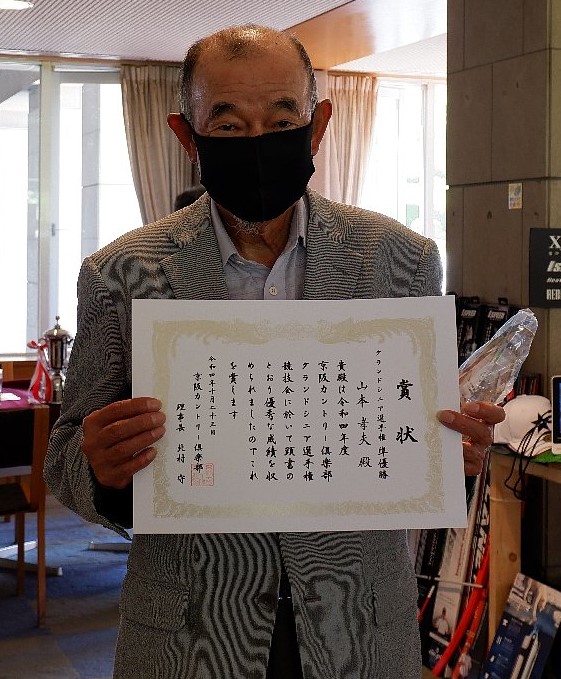 賞状
グランドシニア選手権 準優勝
山本幸夫 殿
貴殿は令和四年度
京阪カントリー倶楽部
グランドシニア選手権
競技会に於いて頭書の
とおり優秀な成績を収
められましたのでこれ
を賞します
令和四年十月二十三日
京阪カントリー倶楽部
理事長 北村 守